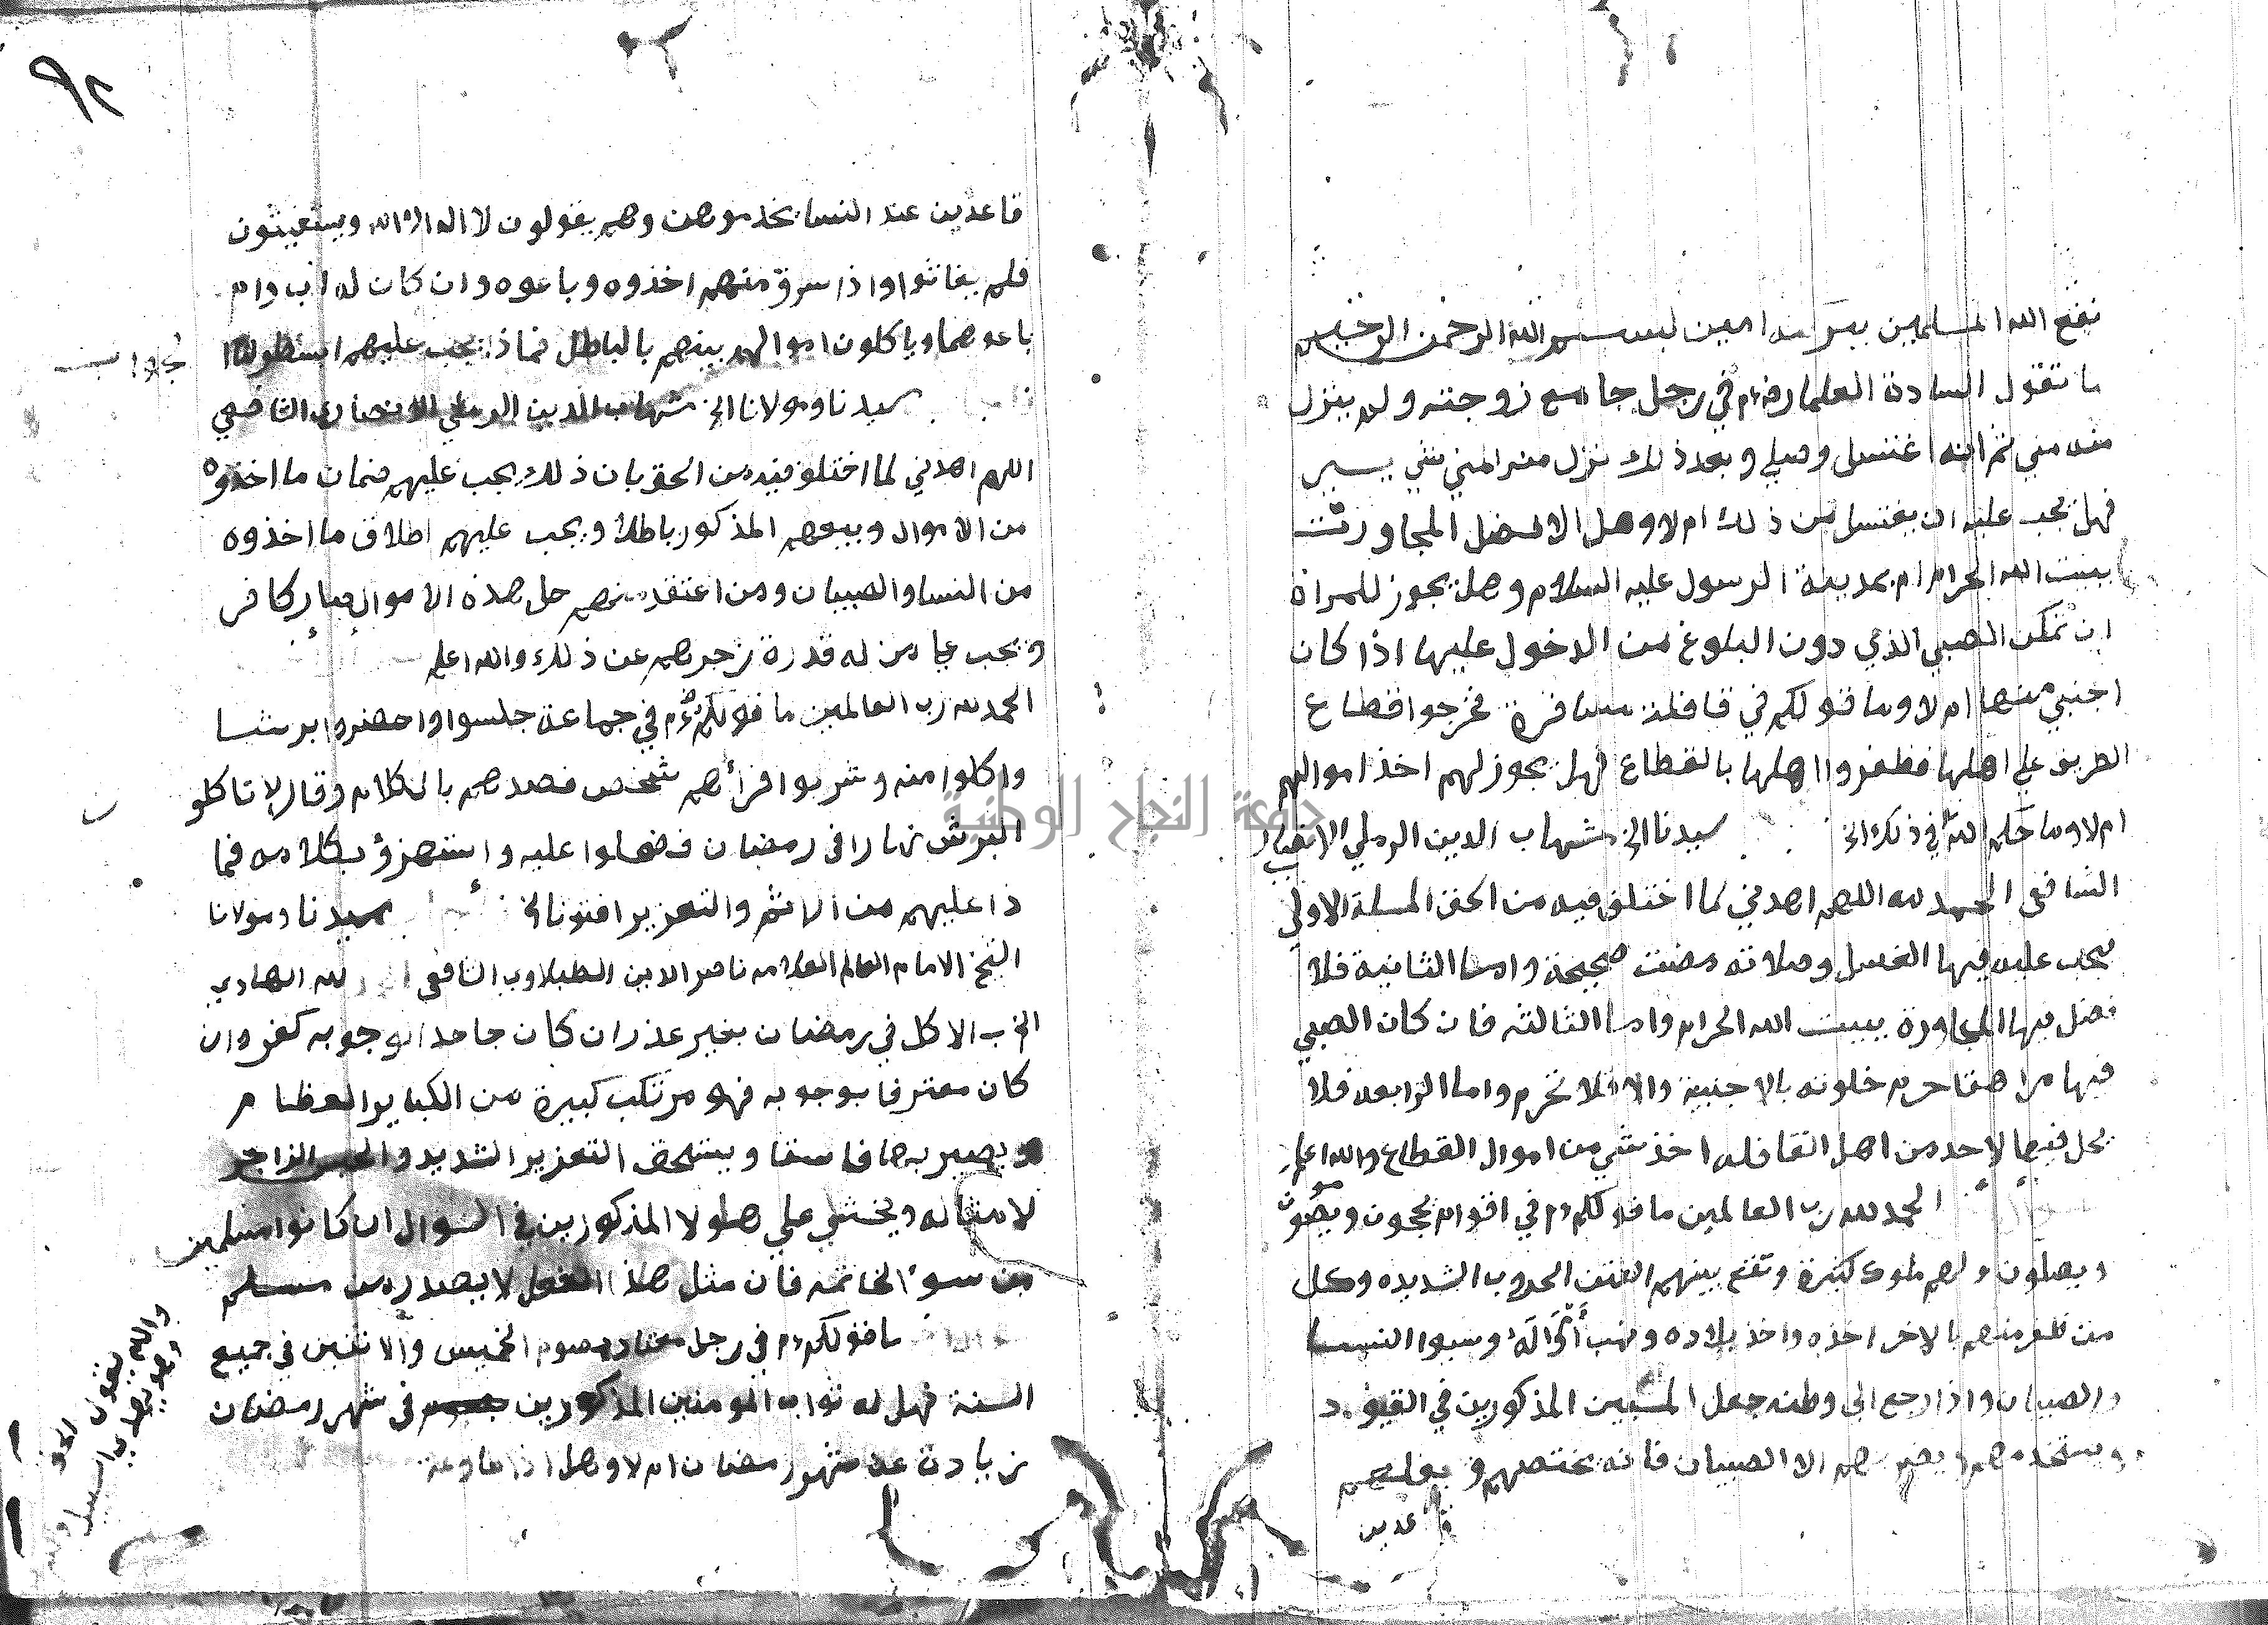 نفع الله المسلمين ببركته امين بسم الله الرحمن الرحيم
ما تقول السادة العلما رضم في رجل جامع زوجته ولم ينزل
منه مني ثم انه اغتسل وصلي وبعد ذلك نزل منه المني شي يسير
فهل يجب عليه ان يغتسل من ذلك ام لا وهل الافضل المجاورة
ببيت الله الحرام ام بمدينة الرسول عليه السلام وهل يجوز للمراة
ان تمكن الصبي الذي دون البلوغ من الدخول عليها اذا كان
اجنبي منها ام لا وما قولكم في قافلة مسافرة فخرجوا قطاع
الطريق علي اهلها فظفروا اهلها بالقطاع فهل يجوز لهم اخذ اموالهم
ام لا وما حكم الله في ذلك الخ سيدنا الخ شهاب الدين الرملي الانصاري
الشافعي الحمد لله اللهم اهدني لما اختلف فيه من الحق المسلة الاولي
يجب عليه فيها الغسل وصلاته مضت صحيحة واما الثانية فلا
فضل فيها المجاورة ببيت الله الحرام واما الثالثه فان كان الصبي
فيها مراهقا حرم خلوته بالاجنبية والا فلا تحرم واما الرابعه فلا
يحل فيها لاحد من اهل القافله اخذ شي من اموال القطاع والله اعلم
الحمد لله رب العالمين ما قولكم رم في اقوام يحجون ويصومون
ويصلون ولهم ملوك كثيرة وتقع بينهم الفتن الحروب الشديده وكل
من ظفر منهم بالاخر اخذه واخذ بلاده ونهب امواله وسبوا النسا
والصبيان واذا رجع الي وطنه جعل المسبيين المذكورين في القيود
ويستخدمهم الا الصبيان فانه يختصهم
قاعدين
٩٢
قاعدين عند النسا يخدموهن وهم يقولون لا اله الا الله ويستغيثون
فلم يغاثوا واذا سرق منهم اخذوه وباعوه وان كان له اب وام
باعوهما وياكلون اموالهم بينهم بالباطل فماذا يجب عليهم ابسطوا لنا
الجواب
سيدنا ومولانا الخ شهاب الدين الرملي الانصاري الشافعي
اللهم اهدني لما اختلف فيه من الحق بان ذلك يجب عليهم ضمان ما اخذوه
من الاموال وبيعهم المذكور باطلا ويجب عليهم اطلاق ما اخذوه
من النسا والصبيان ومن اعتقد منهم حل هذه الاموال صار كافر
ويجب علي من له قدرة زجرهم عن ذلك والله اعلم
الحمد لله رب العالمين ما قولكم رم في جماعة جلسوا واحضروا برشا
واكلوا منه وشربوا فراهم شخص فصدهم بالكلام وقال لا تاكلو
البرش نهارا في رمضان فضحكوا عليه واستهزؤ بكلامه فما
ذا عليهم من الاثم والتعزير افتونا الخ سيدنا ومولانا
الشيخ الامام العالم العلامه ناصر الدين الطبلاوي الشافعي لله الهادي
الخ الاكل في رمضان بغير عذر ان كان جاحدا لوجوبه كفر وان
كان معترفا بوجوبه فهو مرتكب كبيرة من الكباير العظام
ويصير بها فاسقا ويستحق التعزير الشديد والحبس الزاجر
لامثاله ويخشي علي هولا المذكورين في السوال ان كانوا مسلمين
من سوء الخاتمه فان مثل هذا الفعل لا يصدر من مسلم
ما قولكم رم في رجل معتاد بصوم الخميس والاثنين في جميع
السنة فهل له ثواب اليومين المذكورين في شهر رمضان
زيادة عن شهر رمضان ام لا وهل اذا
والله يقول الحق
وهو يهدي السبيل
جامعة النجاح الوطنية